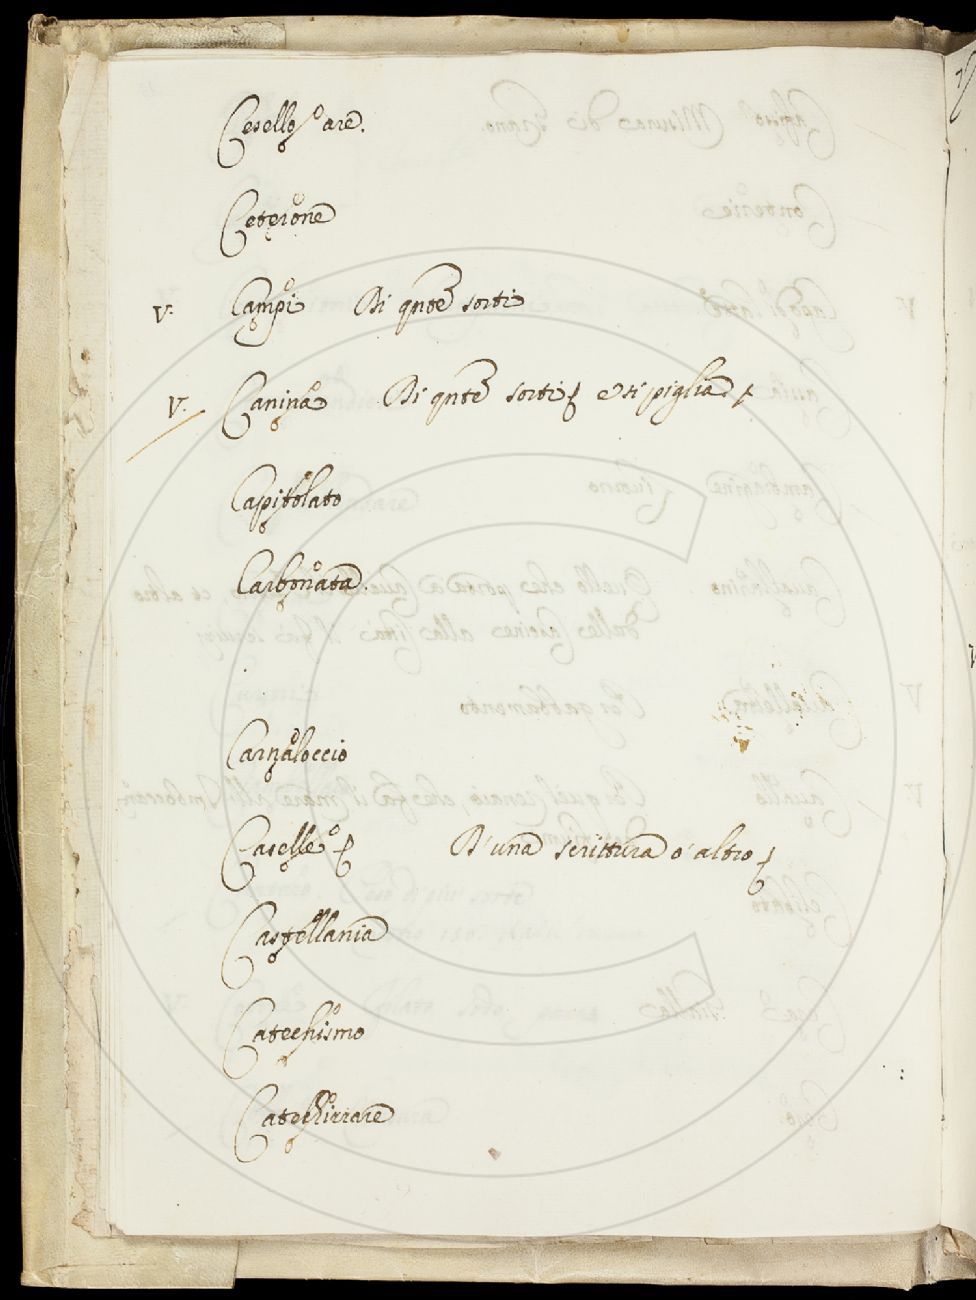 Cesello, are.
Ceterone
V. Campi Di qnte sorti
V. Canina Di qnte sorti, e si piglia
Capitolato
Carbonata.
Carnaloccio
Caselle, D'una scrittura o' altro,
Castellania
Catechismo
Catechizzare